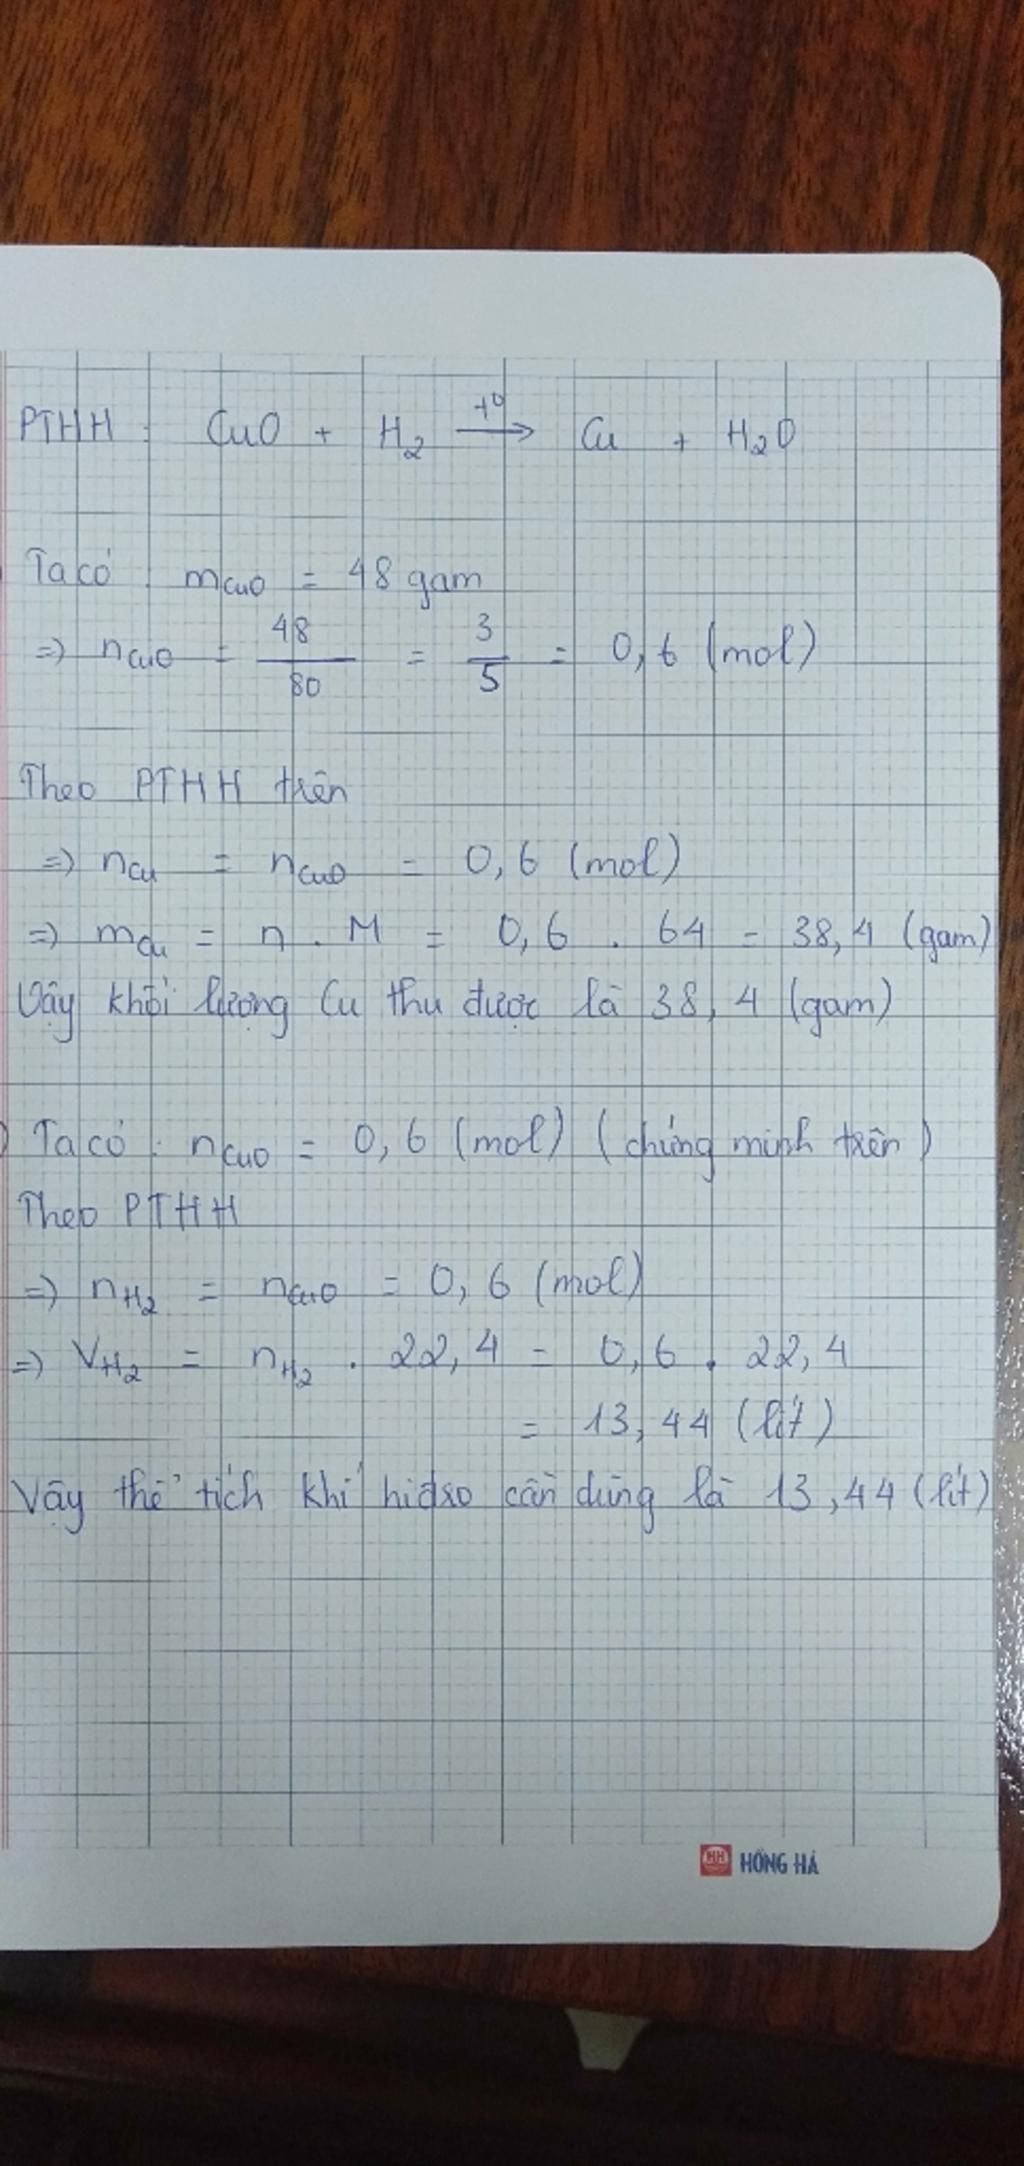 PTHH : CuO + H₂ →(t⁰) Cu + H₂O
) Ta có : mCuO = 48 gam
=> nCuO = 48/80 = 3/5 = 0,6 (mol)
Theo PTHH trên
=> nCu = nCuO = 0,6 (mol)
=> mCu = n . M = 0,6 . 64 = 38,4 (gam)
Vậy khối lượng Cu thu được là 38,4 (gam)
) Ta có : nCuO = 0,6 (mol) (chứng minh trên)
Theo PTHH
=> nH₂ = nCuO = 0,6 (mol)
=> VH₂ = nH₂ . 22,4 = 0,6 . 22,4
= 13,44 (lít)
Vậy thể tích khí hiđro cần dùng là 13,44 (lít)
HH HỒNG HÀ